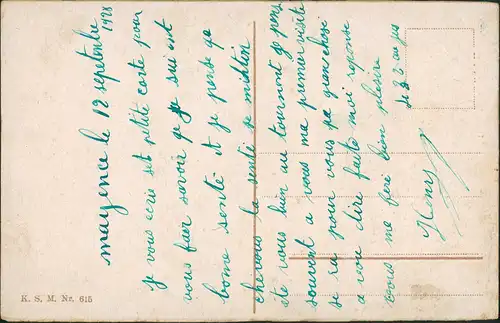 mayence le 12 sepetenbre 1928
je vous ecris set petite carte pour
vous fair savoir qe je sui est
bonne senté et je pense qe
che vous la senté se mintien
ete vous bien au tournont je pens
souvent a vous ma premier visite
se ra pour vous pa gran chose
a vou dire faite moi reponse
vous me feré bien plaisir
Henry
K. S. M. Nr. 615